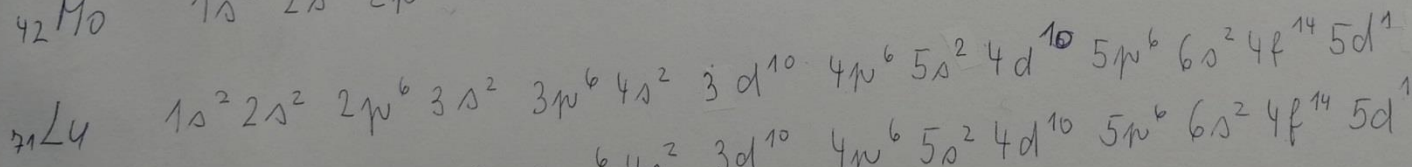 ₄₂Mo 1s 2s 2p
₇₁Lu 1s² 2s² 2p⁶ 3s² 3p⁶ 4s² 3d¹⁰ 4p⁶ 5s² 4d¹⁰ 5p⁶ 6s² 4f¹⁴ 5d¹
3d¹⁰ 4p⁶ 5s² 4d¹⁰ 5p⁶ 6s² 4f¹⁴ 5d¹